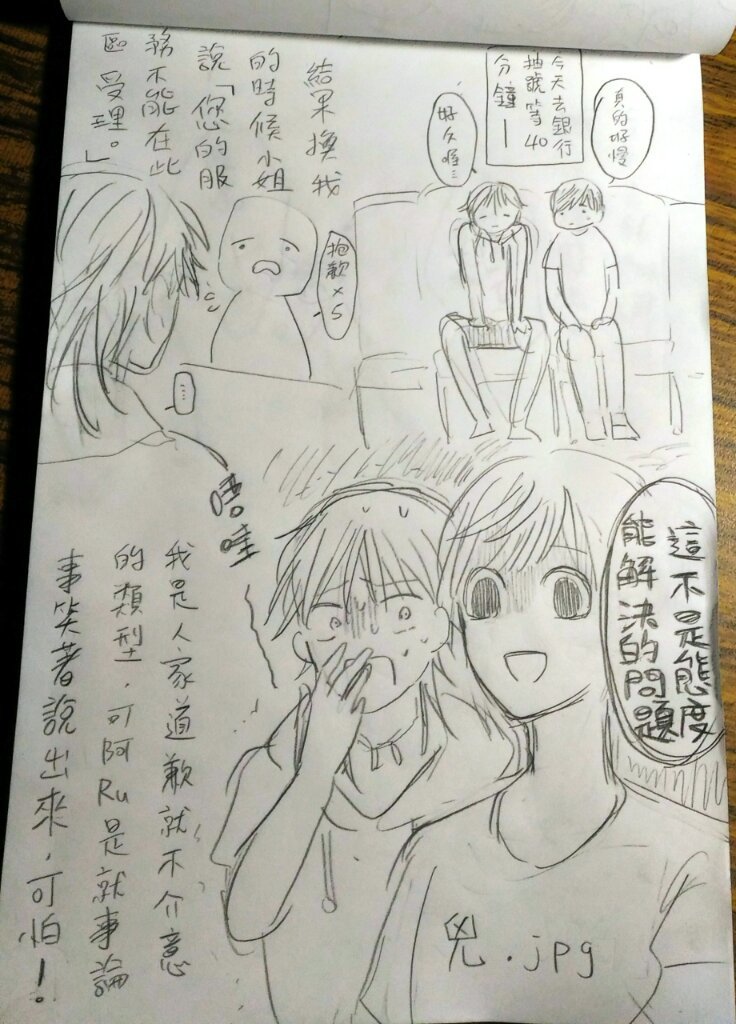 真的好慢
今天去銀行
抽號等40
分鐘—
好久喔…
結果換我
的時候小姐
說「您的服
務不能在此
區受理。」
抱歉×5
…
這不是態度
能解決的問題
唔哇
我是人家道歉就不介意
的類型，可阿Ru是就事論
事笑著說出來，可怕！
兇.jpg